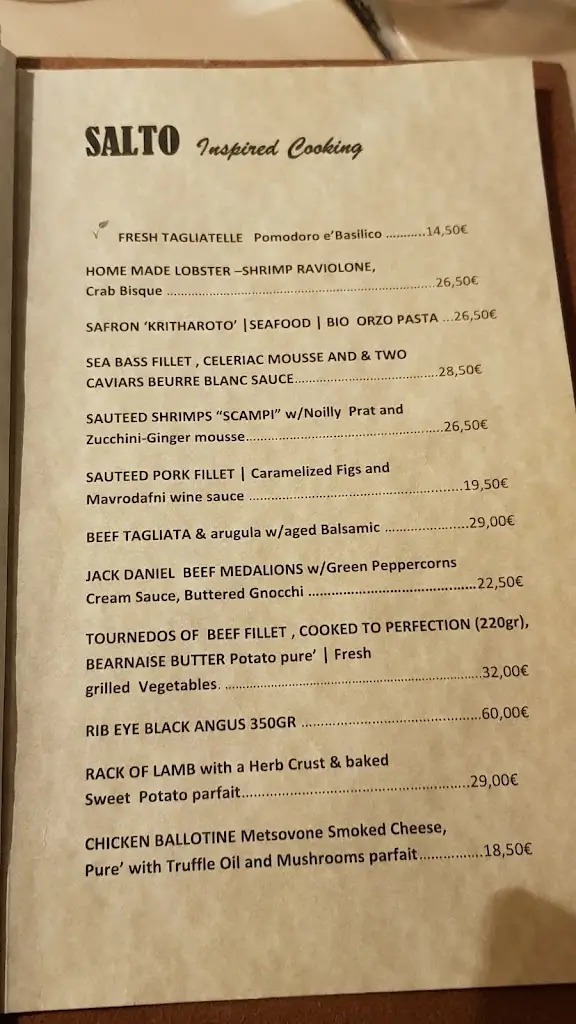 SALTO Inspired Cooking
FRESH TAGLIATELLE Pomodoro e'Basilico ...........14,50€
HOME MADE LOBSTER –SHRIMP RAVIOLONE,
Crab Bisque ..........................................................26,50€
SAFRON 'KRITHAROTO' |SEAFOOD | BIO ORZO PASTA ...26,50€
SEA BASS FILLET , CELERIAC MOUSSE AND & TWO
CAVIARS BEURRE BLANC SAUCE...............................28,50€
SAUTEED SHRIMPS "SCAMPI" w/Noilly Prat and
Zucchini-Ginger mousse...........................................26,50€
SAUTEED PORK FILLET | Caramelized Figs and
Mavrodafni wine sauce ..............................................19,50€
BEEF TAGLIATA & arugula w/aged Balsamic ..................29,00€
JACK DANIEL BEEF MEDALIONS w/Green Peppercorns
Cream Sauce, Buttered Gnocchi ....................................22,50€
TOURNEDOS OF BEEF FILLET , COOKED TO PERFECTION (220gr),
BEARNAISE BUTTER Potato pure' | Fresh
grilled Vegetables. .......................................................32,00€
RIB EYE BLACK ANGUS 350GR ......................................60,00€
RACK OF LAMB with a Herb Crust & baked
Sweet Potato parfait.................................................29,00€
CHICKEN BALLOTINE Metsovone Smoked Cheese,
Pure' with Truffle Oil and Mushrooms parfait..............18,50€